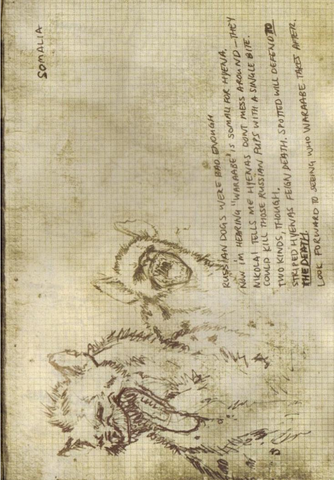 SOMALIA
RUSSIAN DOGS WERE BAD ENOUGH.
NOW I'M HEARING "WARAABE" IS SOMALI FOR HYENA.
NIKOLAI TELLS ME HYENAS DONT MESS AROUND - THEY
COULD KILL THOSE RUSSIAN PUPS WITH A SINGLE BITE.
TWO KINDS, THOUGH.
STRIPED HYENAS FEIGN DEATH. SPOTTED WILL DEFEND TO
THE DEATH.
LOOK FORWARD TO SEEING WHO WARAABE TAKES AFTER.